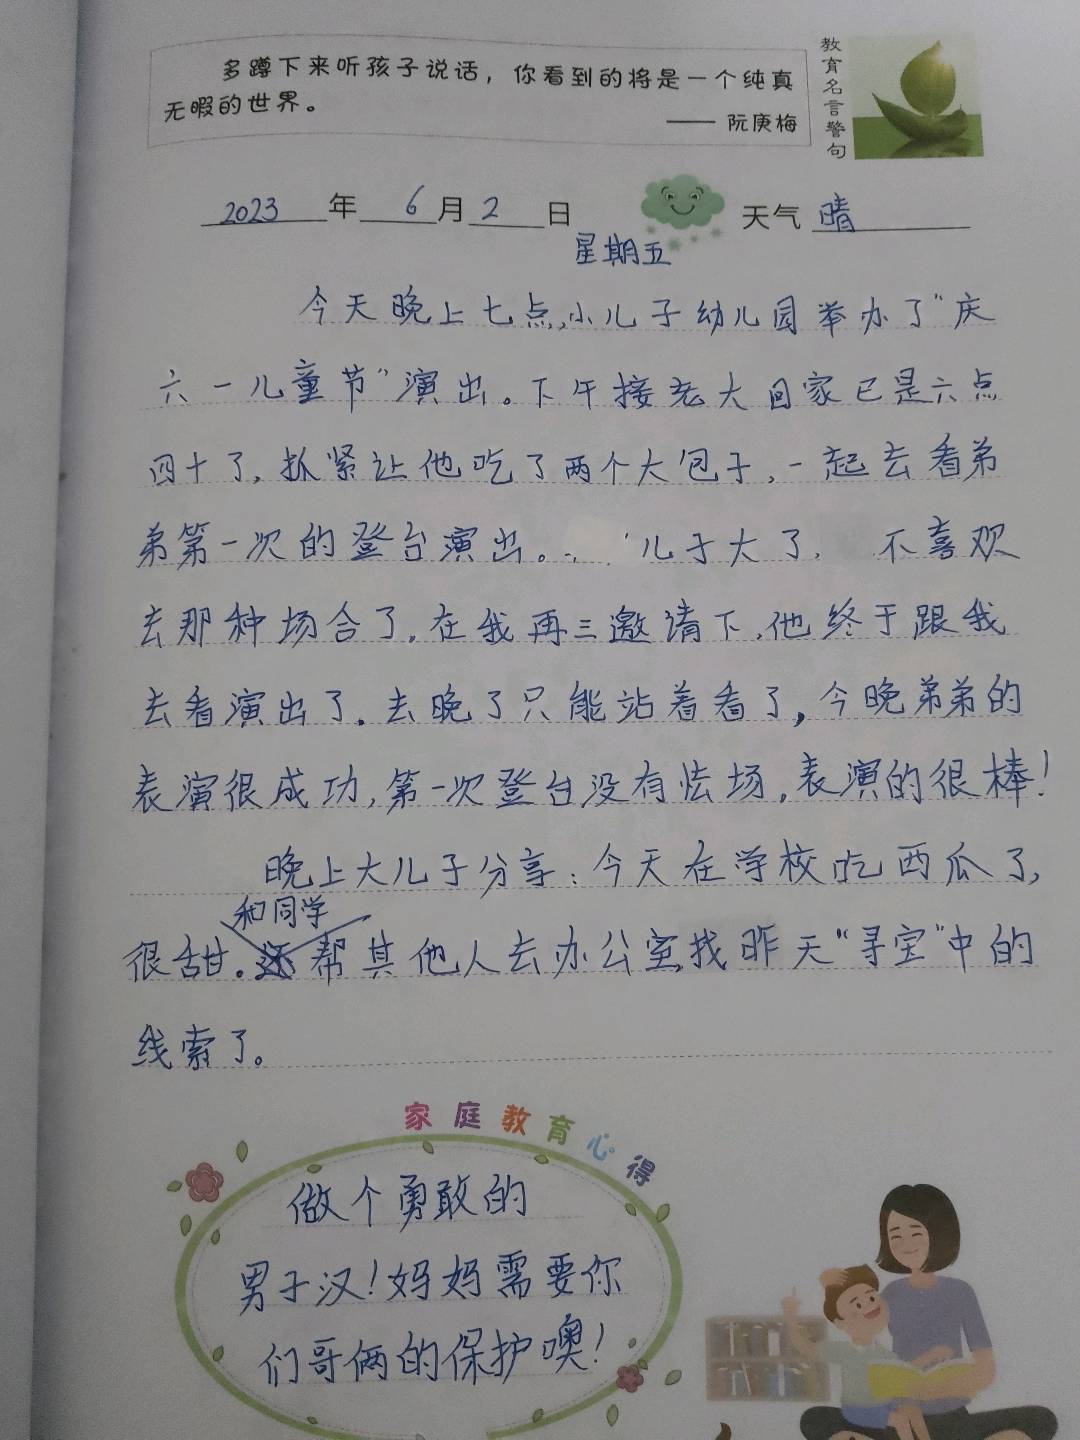 多蹲下来听孩子说话，你看到的将是一个纯真
无暇的世界。
—— 阮庚梅
教育名言警句
2023年6月2日
天气 晴
星期五
今天晚上七点,小儿子幼儿园举办了"庆
六一儿童节"演出。下午接老大回家已是六点
四十了,抓紧让他吃了两个大包子,一起去看弟
弟第一次的登台演出。儿子大了, 不喜欢
去那种场合了,在我再三邀请下,他终于跟我
去看演出了。去晚了只能站着看了,今晚弟弟的
表演很成功,第一次登台没有怯场,表演的很棒!
晚上大儿子分享:今天在学校吃西瓜了,
和同学
很甜。帮其他人去办公室找昨天"寻宝"中的
线索了。
家庭教育心得
做个勇敢的
男子汉!妈妈需要你
们哥俩的保护噢!